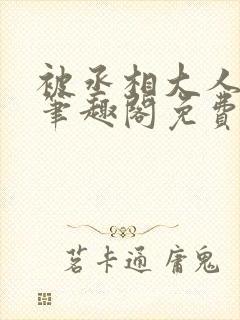 被丞相大人
笔趣阁免费
茗卡通 庸鬼